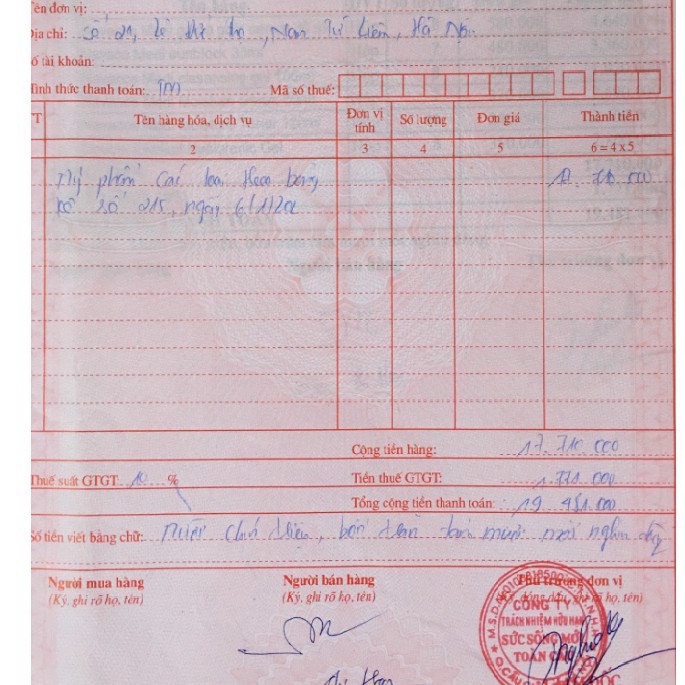 Tên đơn vị:
Địa chỉ: Số 21, Lê Đức Thọ, Nam Từ Liêm, Hà Nội
Số tài khoản:
Hình thức thanh toán: TM Mã số thuế:
TT Tên hàng hóa, dịch vụ Đơn vị tính Số lượng Đơn giá Thành tiền
2 3 4 5 6 = 4 x 5
Mỹ phẩm các loại theo bảng 17.710.000
kê số 215, ngày 6/1/20
Cộng tiền hàng: 17.710.000
Thuế suất GTGT: 10 % Tiền thuế GTGT: 1.771.000
Tổng cộng tiền thanh toán: 19.481.000
Số tiền viết bằng chữ: Mười chín triệu, bốn trăm tám mươi mốt nghìn đồng
Người mua hàng Người bán hàng Thủ trưởng đơn vị
(Ký, ghi rõ họ, tên) (Ký, ghi rõ họ, tên) (Ký, đóng dấu, ghi rõ họ, tên)
CÔNG TY
TRÁCH NHIỆM HỮU HẠN
SỨC SỐNG MỚI
TOÀN